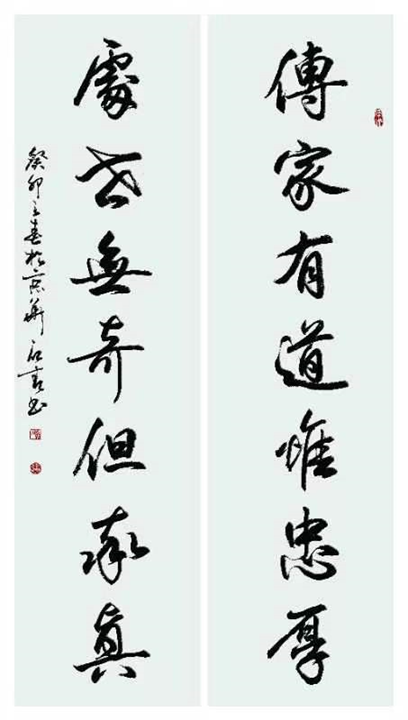 傳家有道惟忠厚
處世無奇但率真
癸卯之春於京華书